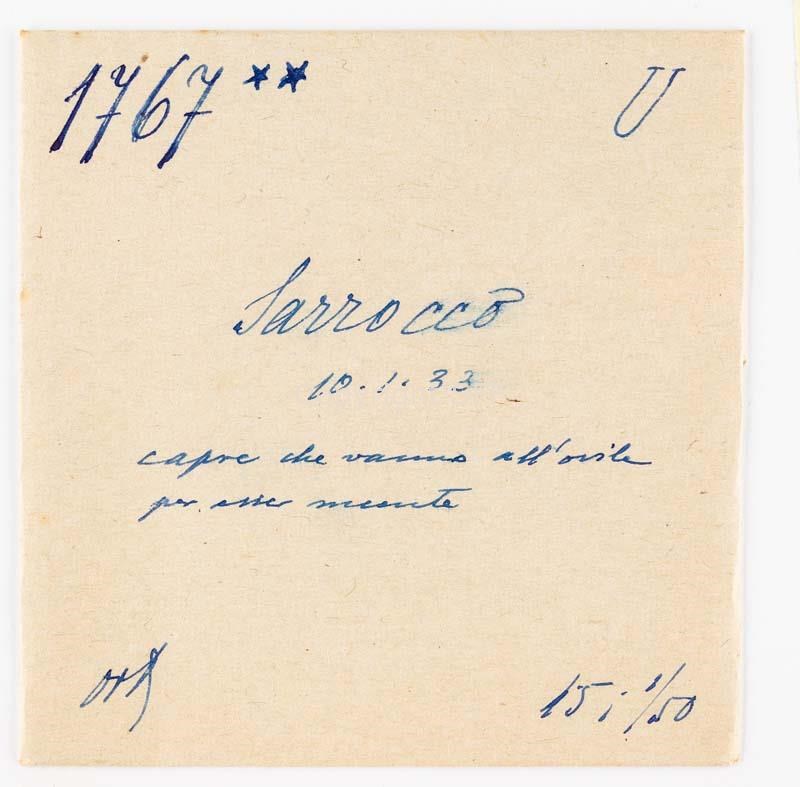 1767 ** U
Sarroccō
10.1.33
capre che vanno all'ovile
per esser munte
15 ; 1/50